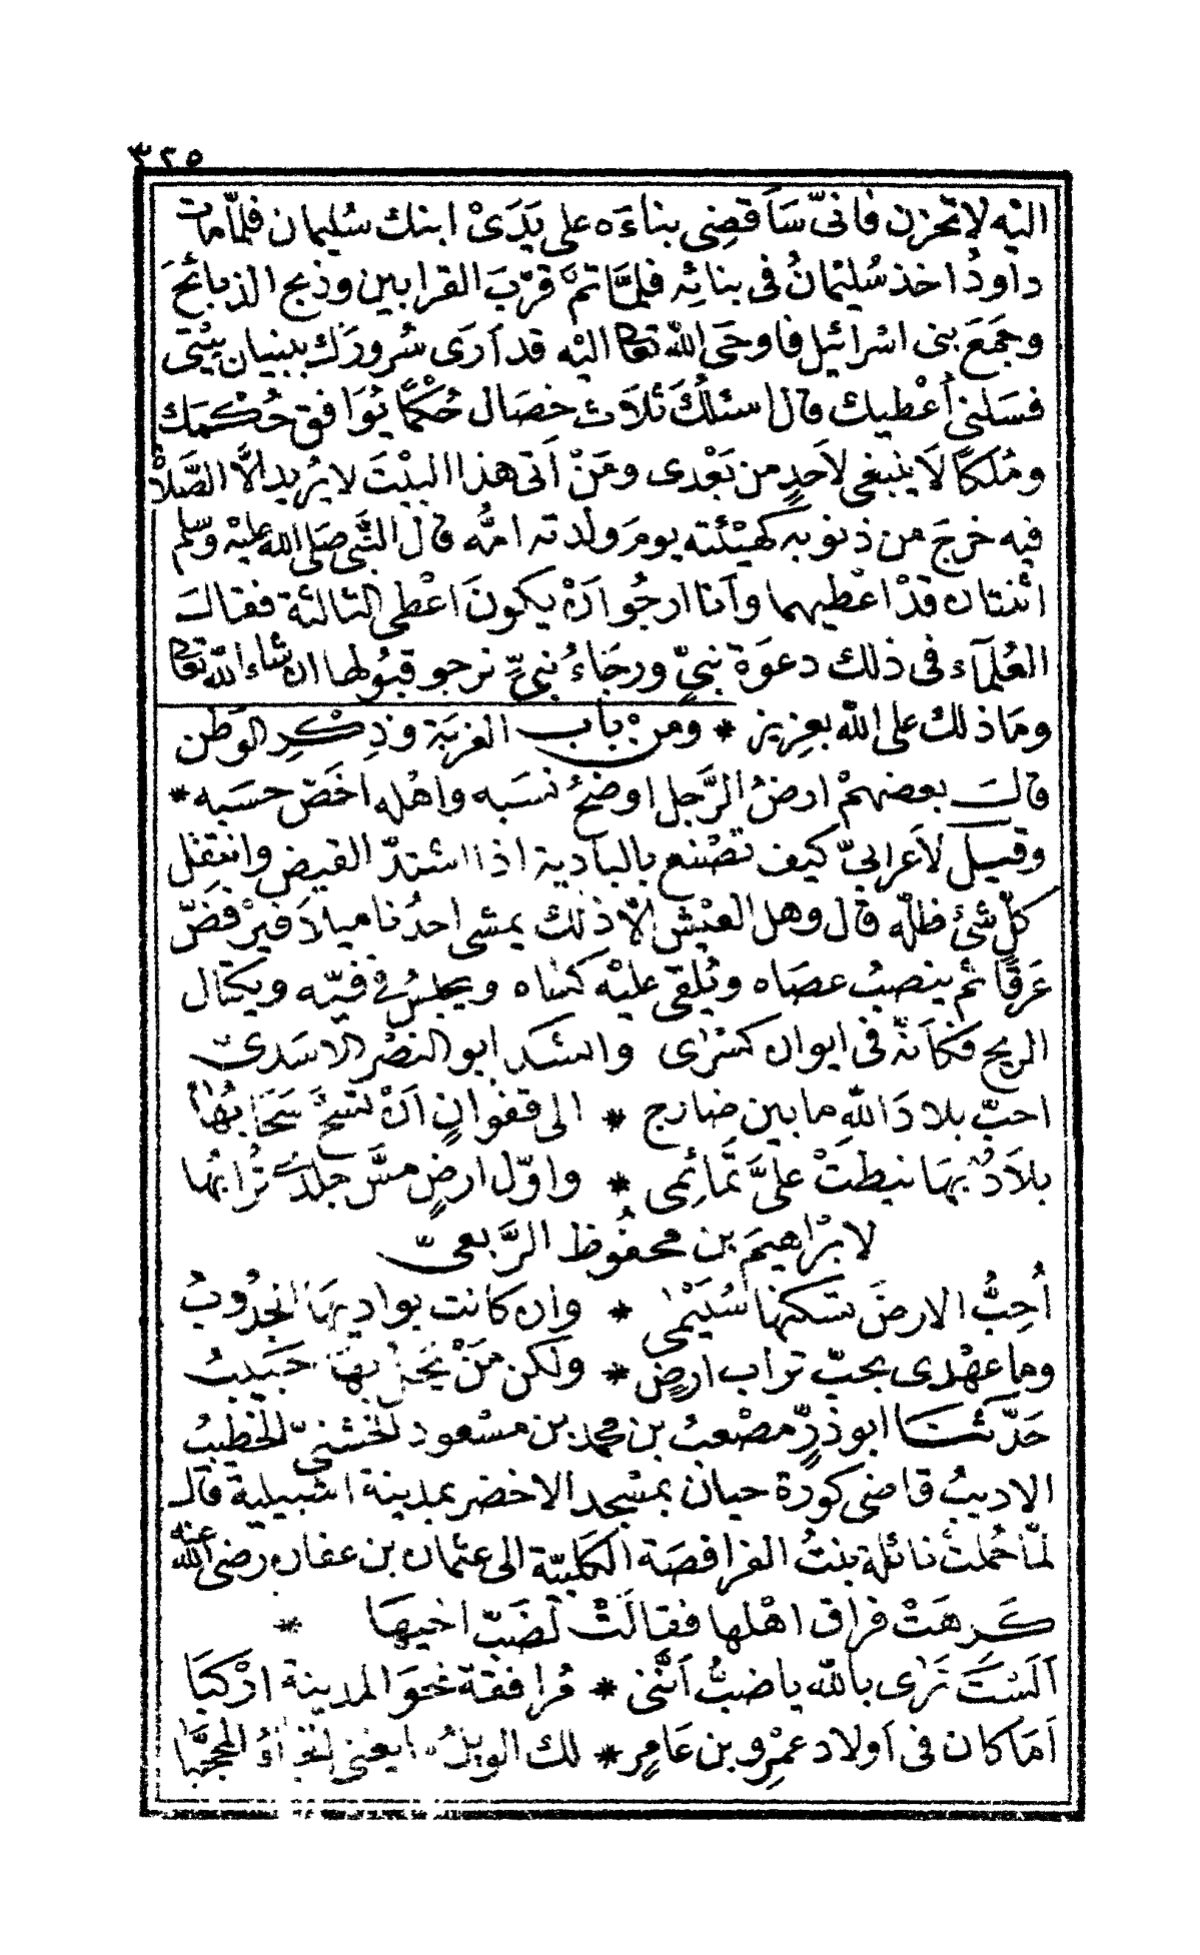 ٣٢٥
اليْه لا تحزن فانىّ سَأقضِى بناءَه على يَدَىْ ابنك سُليمان فلمّا مات
داودُ اخذ سُليْمانُ فى بنائِه فلمَّا تمّ قرّبَ القرابين وذبح الذبائحَ
وجمَعَ بنى اسْرائيل فاوحَى الله تعالى اليْه قد أرَى سُرورَك ببنيان بيْتى
فسَلنى أعْطيك قال اسئلُكَ ثلاث خصَال حُكْمًا يُوَافق حُكْمَك
ومُلكًا لَا ينبغى لأحدٍ من بَعْدى ومَنْ أتى هذا البيْتَ لا يُريد الَّا الصَّلاة
فيه خرجَ من ذنوبه كهيْئته يومَ ولدته امُّه قال النَّبى صَلى الله عليْه وسّلم
اثنتان قدْ اعْطيهما وأنا ارجُو انْ يكونَ اعْطى الثالثة فقالَ
العُلمَآء فى ذلك دعوَة نبىٍّ ورجَاءُ نبىٍّ نرجو قبُولها ان شاء الله تعالى
ومَا ذلك على الله بعزيز * ومن باب الغربَة وذِكْرِ الوَطن
قالَ بعضهمْ ارضُ الرَّجل اوضحُ نسَبه واهْله اخَصّ حسَبه *
وقيل لأعرابىّ كيف تصْنع بالبادية اذا اشتدّ القيض وانتقل
كلّ شئ ظلّه قال وهل العيْش الّا ذلك يمشى احدُنا ميلاً فيرْفضّ
عَرقًا ثم ينصبُ عصَاه ويُلقى عليْه كسَاه ويجلسُ فى فيّه ويكتال
الريح فكأنّه فى ايوان كسْرَى وانشد ابو النصْر الاسَدىّ
احبّ بلادَ اللهِ ما بين ضارج * الى قفوانٍ انْ تسحّ سَحَابُهَا
بلَادٌ بهَا نيطتْ علىَّ تمَائِمى * واوّل ارضٍ مسَّ جلدىَ تُرابُهَا
لابْرَاهيمَ بن محفُوظ الرَّبعىّ
أُحِبُّ الارضَ تسكنها سُلَيْمى * وان كانت بواديهَا الجدُوبُ
وما عهْدى بحبّ تراب ارضٍ * ولكن مَنْ يَحلّ بهَا حَبيبُ
حَدّثنَا ابو ذرٍّ مصْعبُ بن محمد بن مسْعود الخشنىّ الخطيبُ
الاديبُ قاضى كورَة جيان بمسْجد الاخضر بمدينة اشبيلية قال
لمّا حُملتْ نائلة بنتُ الفرافصَة الكلبيّة الى عثمان بن عفان رضى الله عنه
كَرهَتْ فراق اهْلها فقالَتْ لضَبّ اخيهَا *
ألسْتَ تَرَى بالله يا ضبُّ أنَّنى * مُرافقة نحوَ المدينة ارْكبَا
أمَا كان فى أولاد عمْرو بن عَامِرٍ * لك الويْلُ ما يغنى الخباءُ المحجبَّا